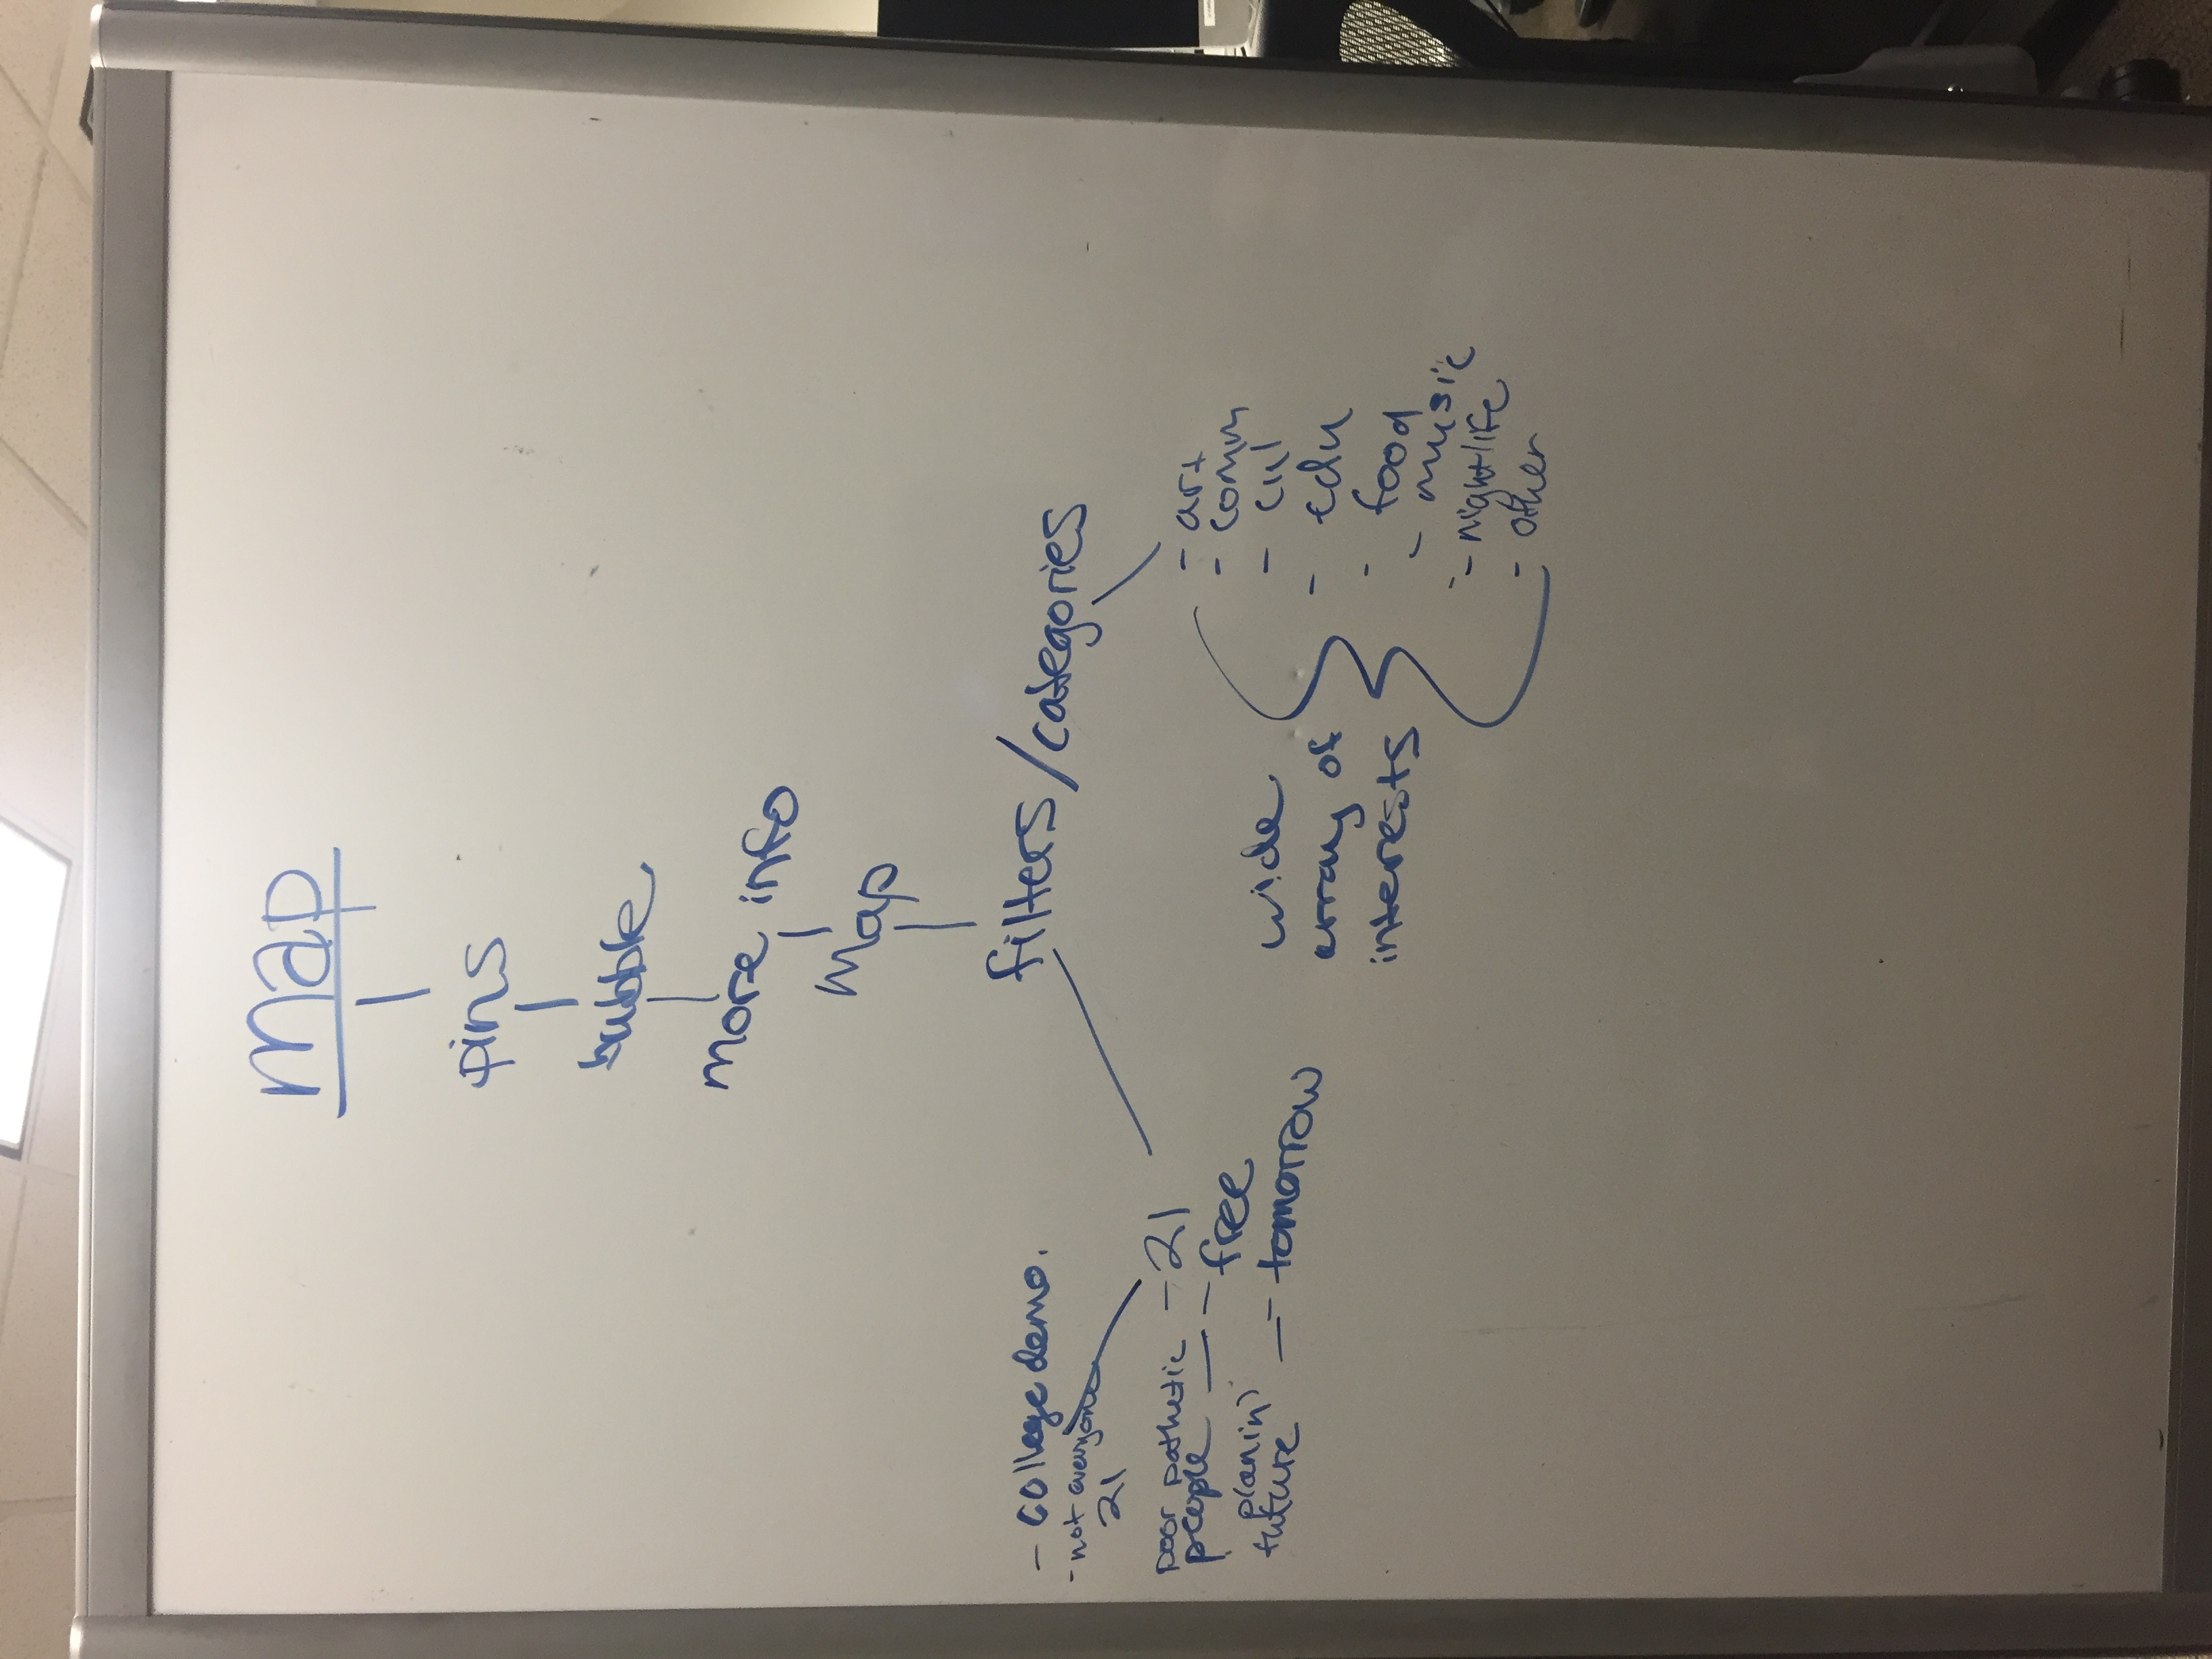 map
pins
bubble
more info
map
filters/categories
- college demo.
- not everyone
21
- 21
poor pathetic
people — - free
planin'
future — - tomorrow
wide
array of
interests
- art
- comm
- cul
- edu
- food
- music
- nightlife
- other